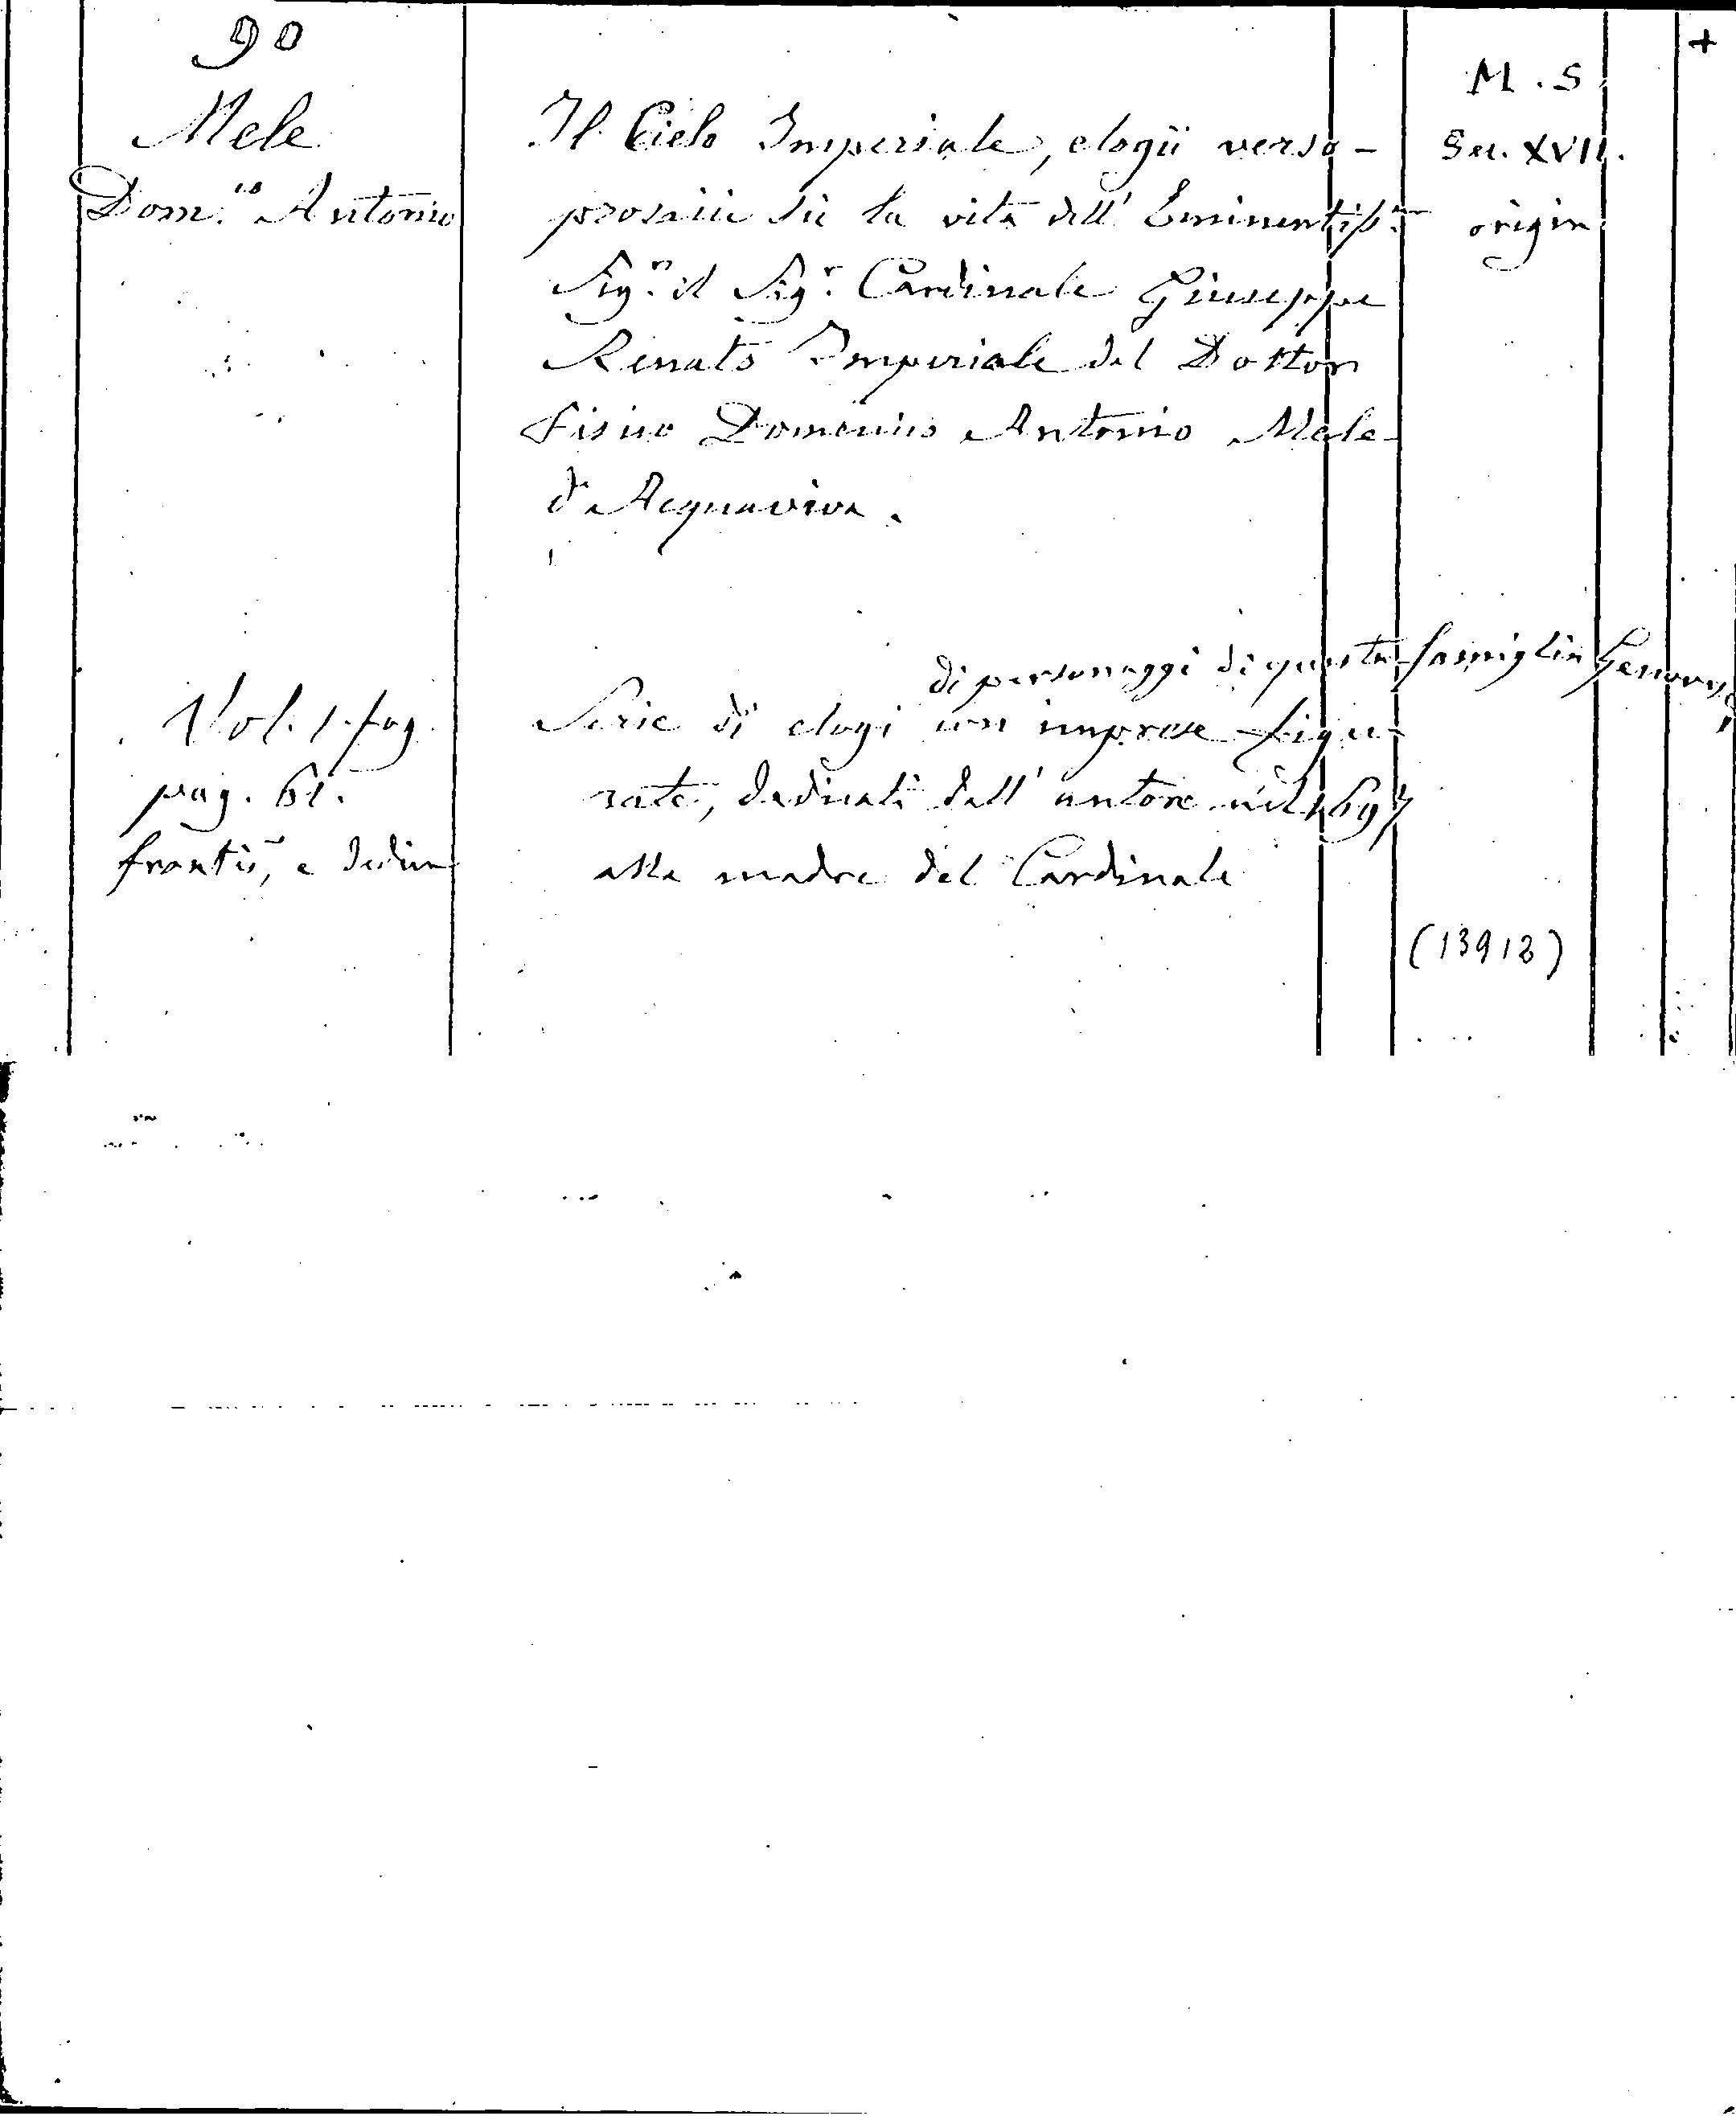 90
+
M. S
Mele
Dom.co Antonio
Il Cielo Imperiale, elogii verso-
prosaici sù la vita dell' Eminentiss.mo
Sig.r il Sig.r Cardinale Giuseppe
Renato Imperiale del Dottor
Fisico Domenico Antonio Mele
d'Acquaviva.
Sec. XVII.
origin.
Vol. 1. fog.
pag. 61.
frontis, e dedica
di personaggi di questa famiglia Genovese
Serie di elogi con imprese figu-
rate, dedicati dall' autore nel 1697
alla madre del Cardinale
(13912)